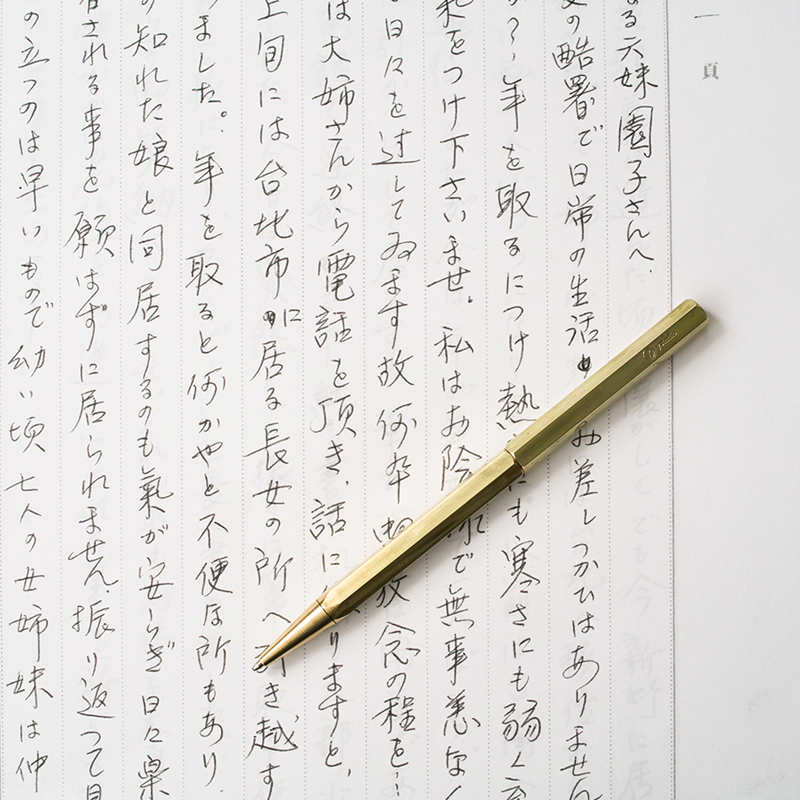 一頁
なる六妹園子さんへ、
の酷署で日常の生活 お差しつかひはありません
か?、年を取るにつけ熱 にも寒さにも弱く
気をつけ下さいませ。私はお陰様で無事恙なく
日々を過してゐます故何卒 放念の程を…
は大姉さんから電話を頂き、話に りますと、
上旬には台北市に居る長女の所へ引き越す
ました。年を取ると何かやと不便な所もあり、
の知れた娘と同居するのも氣が安らぎ日々
される事を願はずに居られません、振り返つて見
の立つのは早いもので幼い頃七人の女姉妹は仲